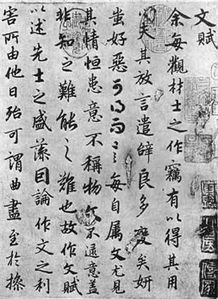 文賦
余每觀材士之作竊有以得其用
心夫其放言遣辭良多變矣妍
蚩好惡可得而言每自屬文尤見
其情恒患意不稱物文不逮意蓋
非知之難能之難也故作文賦
以述先士之盛藻因論作文之利
害所由他日殆可謂曲盡至於操